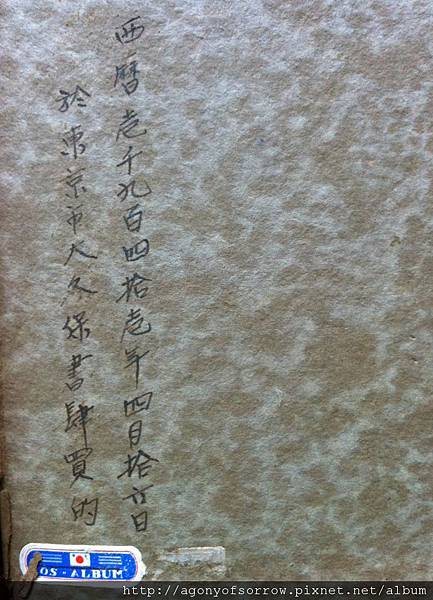 西曆壱千九百四拾壱年四月拾六日
於東京市大久保書肆買的
OS-ALBUM
http://agonyofsorrow.pixnet.net/album